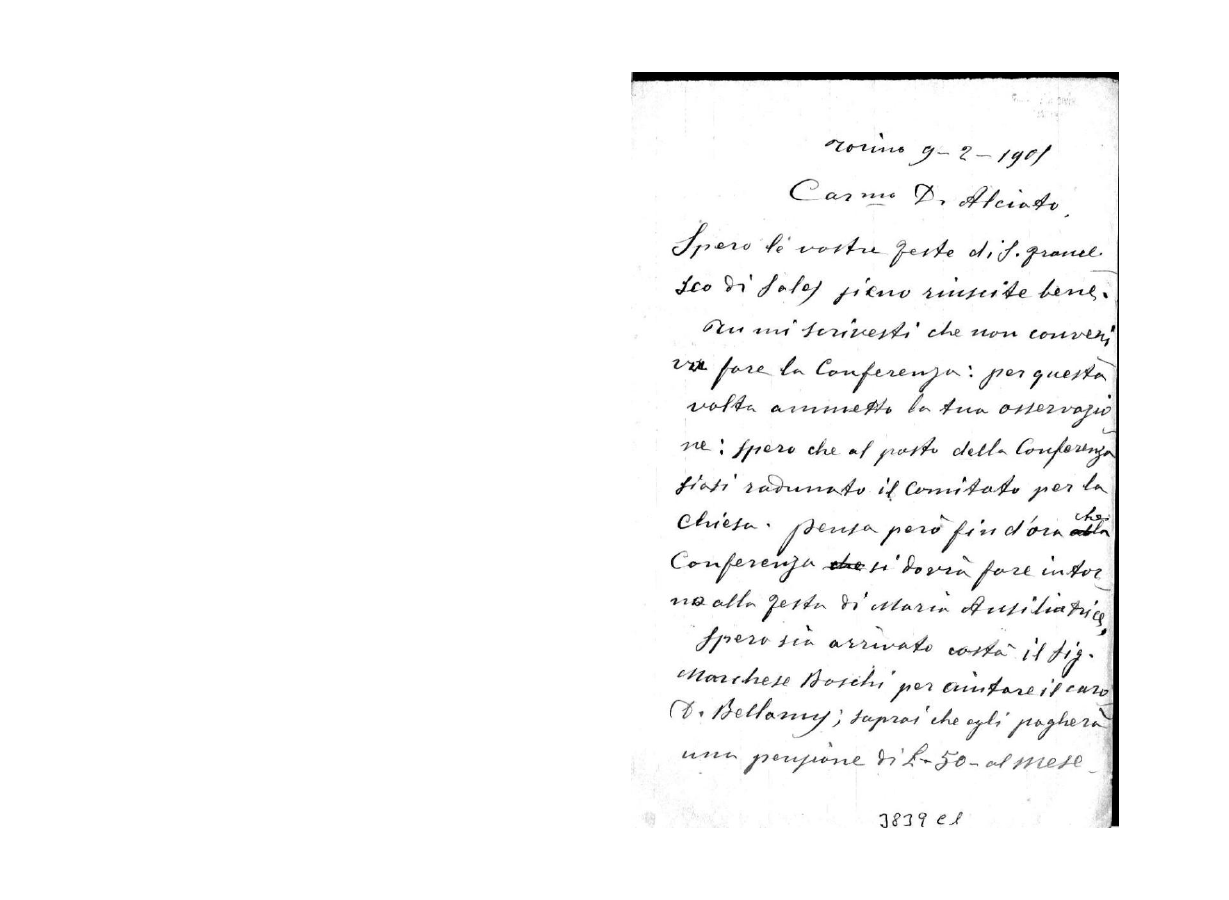 Torino 9-2-1901
Carmo D. Alciato,
Spero le vostre feste di S. France
sco di Sales sieno riuscite bene.
Tu mi scrivesti che non conveni
va fare la Conferenza: per questa
volta ammetto la tua osservazio
ne: spero che al posto della Conferenza
siasi radunato il Comitato per la
Chiesa. Pensa però fin d'ora che alla
Conferenza che si dovrà fare intor
no alla festa di Maria Ausiliatrice,
Spero sia arrivato costà il Sig.
Marchese Boschi per aiutare il caro
D. Bellamy; saprai che egli pagherà
una pensione di L. 50 - al mese -
3839 cl